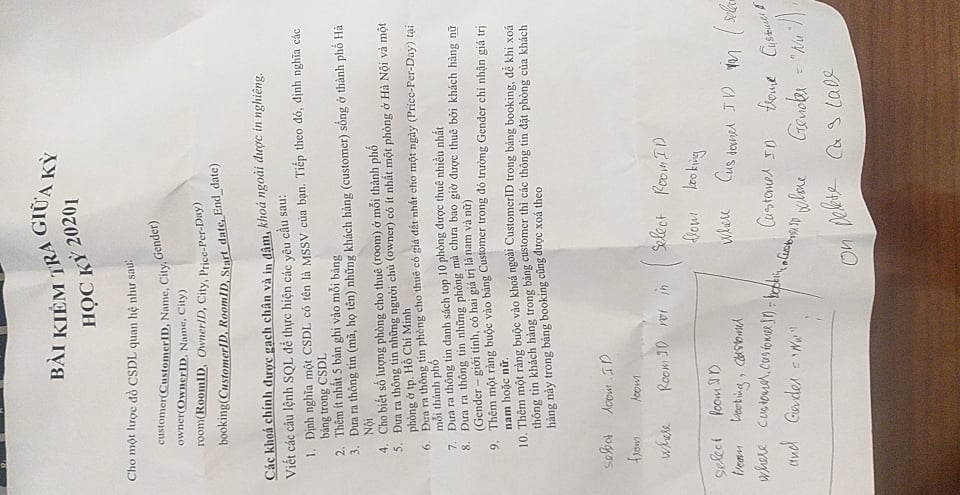 BÀI KIỂM TRA GIỮA KỲ
HỌC KỲ 20201
Cho một lược đồ CSDL quan hệ như sau:
customer(CustomerID, Name, City, Gender)
owner(OwnerID, Name, City)
room(RoomID, OwnerID, City, Price-Per-Day)
booking(CustomerID, RoomID, Start_date, End_date)
Các khoá chính được gạch chân và in đậm, khoá ngoài được in nghiêng.
Viết các câu lệnh SQL để thực hiện các yêu cầu sau:
1. Định nghĩa một CSDL có tên là MSSV của bạn. Tiếp theo đó, định nghĩa các
bảng trong CSDL
2. Thêm ít nhất 5 bản ghi vào mỗi bảng
3. Đưa ra thông tin (mã, họ tên) những khách hàng (customer) sống ở thành phố Hà
Nội
4. Cho biết số lượng phòng cho thuê (room) ở mỗi thành phố
5. Đưa ra thông tin những người chủ (owner) có ít nhất một phòng ở Hà Nội và một
phòng ở tp. Hồ Chí Minh
6. Đưa ra thông tin phòng cho thuê có giá đắt nhất cho một ngày (Price-Per-Day) tại
mỗi thành phố
7. Đưa ra thông tin danh sách top 10 phòng được thuê nhiều nhất
8. Đưa ra thông tin những phòng mà chưa bao giờ được thuê bởi khách hàng nữ
(Gender – giới tính, có hai giá trị là nam và nữ)
9. Thêm một ràng buộc vào bảng Customer trong đó trường Gender chỉ nhận giá trị
nam hoặc nữ.
10. Thêm một ràng buộc vào khoá ngoài CustomerID trong bảng booking, để khi xoá
thông tin khách hàng trong bảng customer thì các thông tin đặt phòng của khách
hàng này trong bảng booking cũng được xoá theo
select room.ID
from room
where RoomID not in (select RoomID
from booking
where CustomerID in (selec
CustomerID frome Custome
where Gender = "Nu"))
select RoomID
from booking, customer
where customer.customerID = booking.CustomerID
and Gender = "Nu"
;
ON DELETE CASCADE